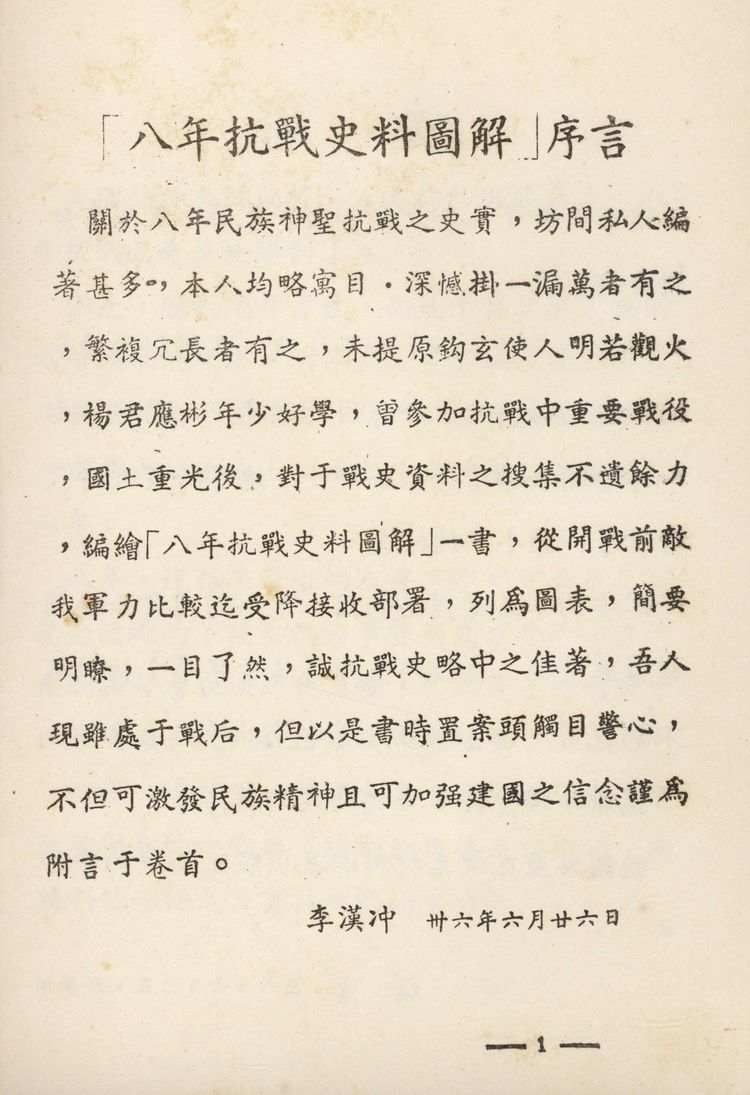 「八年抗戰史料圖解」序言
關於八年民族神聖抗戰之史實，坊間私人編
著甚多，本人均略寓目．深憾掛一漏萬者有之
，繁複冗長者有之，未提原鈎玄使人明若觀火
，楊君應彬年少好學，曾參加抗戰中重要戰役
，國土重光後，對于戰史資料之搜集不遺餘力
，編繪「八年抗戰史料圖解」一書，從開戰前敵
我軍力比較迄受降接收部署，列爲圖表，簡要
明瞭，一目了然，誠抗戰史略中之佳著，吾人
現雖處于戰后，但以是書時置案頭觸目警心，
不但可激發民族精神且可加强建國之信念謹爲
附言于卷首。
李漢冲 卅六年六月廿六日
— 1 —